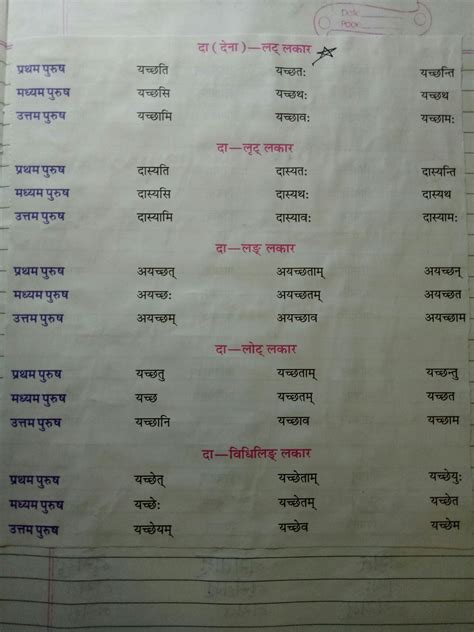 दा ( देना )—लट् लकार
प्रथम पुरुष यच्छति यच्छतः यच्छन्ति
मध्यम पुरुष यच्छसि यच्छथः यच्छथ
उत्तम पुरुष यच्छामि यच्छावः यच्छामः
दा—लृट् लकार
प्रथम पुरुष दास्यति दास्यतः दास्यन्ति
मध्यम पुरुष दास्यसि दास्यथः दास्यथ
उत्तम पुरुष दास्यामि दास्यावः दास्यामः
दा—लङ् लकार
प्रथम पुरुष अयच्छत् अयच्छताम् अयच्छन्
मध्यम पुरुष अयच्छः अयच्छतम् अयच्छत
उत्तम पुरुष अयच्छम् अयच्छाव अयच्छाम
दा—लोट् लकार
प्रथम पुरुष यच्छतु यच्छताम् यच्छन्तु
मध्यम पुरुष यच्छ यच्छतम् यच्छत
उत्तम पुरुष यच्छानि यच्छाव यच्छाम
दा—विधिलिङ् लकार
प्रथम पुरुष यच्छेत् यच्छेताम् यच्छेयुः
मध्यम पुरुष यच्छेः यच्छेतम् यच्छेत
उत्तम पुरुष यच्छेयम् यच्छेव यच्छेम